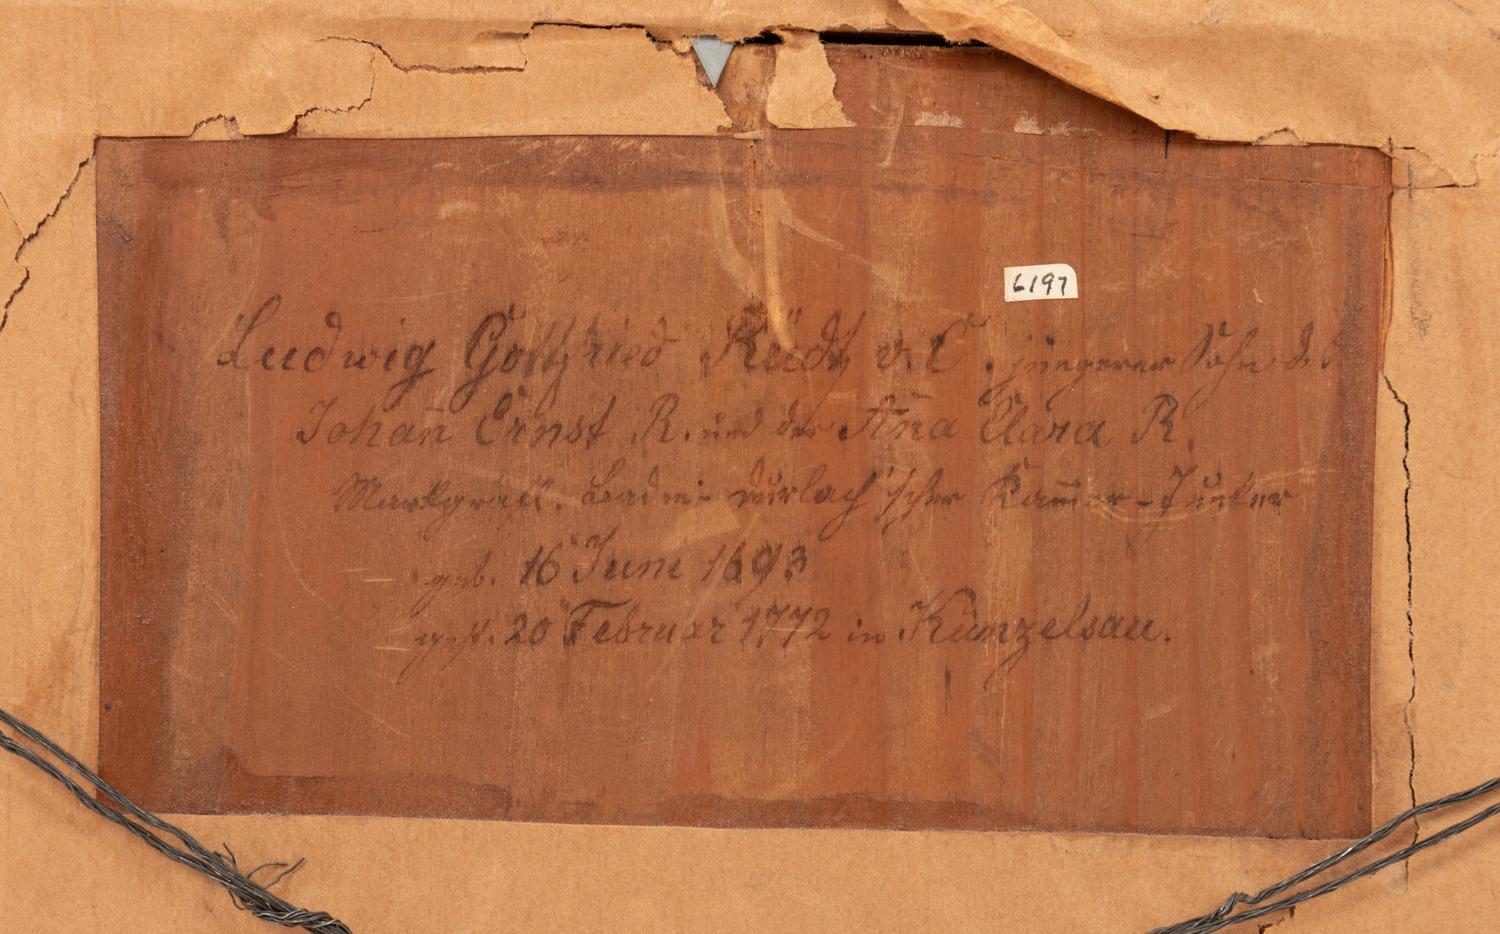 6197
Ludwig Gottfried Rüdt v. C. jüngerer Sohn des
Johan̄ Ernst R. und der An̄a Clara R.
Markgräfl. Baden-durlach'scher Kam̄er-Junker
geb. 16 Juni 1693
gest. 20 Februar 1772 in Künzelsau.